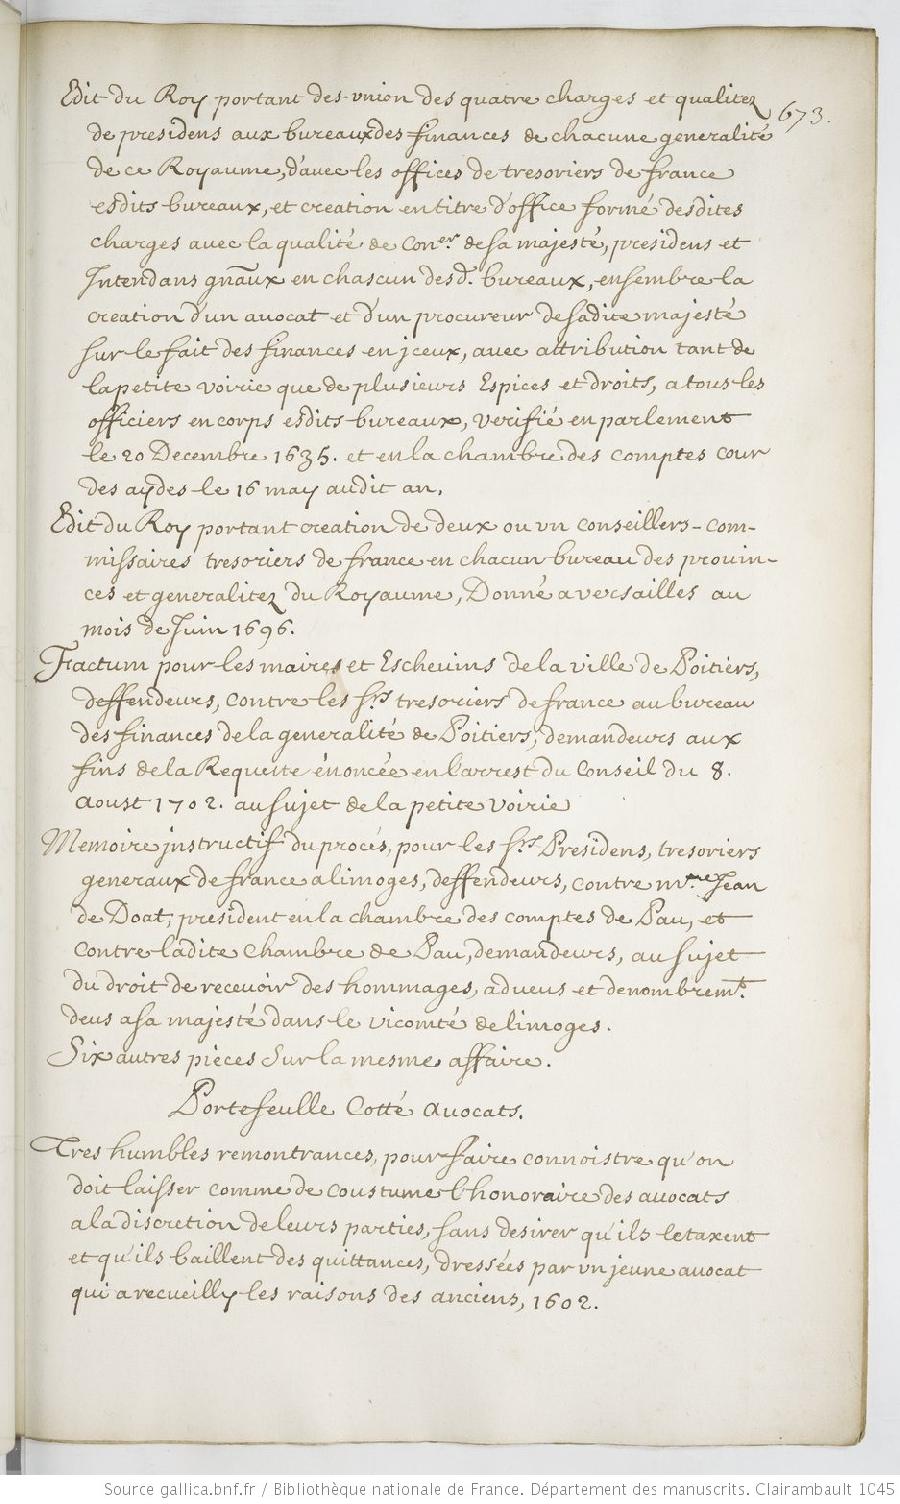 Edit du Roy portant des-union des quatre charges et qualitez
673.
de presidens aux bureaux des finances de chacune generalité
de ce Royaume, d'avec les offices de tresoriers de france
esdits bureaux, et creation en titre d'office formé desdites
charges avec la qualité de Con.ers de sa majesté, presidens et
Intendans gnãux en chascun desd. bureaux, ensembre la
creation d'un avocat et d'un procureur de sadite majesté
sur le fait des finances en jceux, avec attribution tant de
la petite voirie que de plusieurs Espices et droits, a tous les
officiers en corps esdits bureaux, verifié en parlement
le 20 Decembre 1635. et en la chambre des comptes cour
des aydes le 16 may audit an.
Edit du Roy portant creation de deux ou vn conseillers-com-
missaires tresoriers de france en chacun bureau des prouin-
ces et generalitez du Royaume, Donné a versailles au
mois de Juin 1696.
Factum pour les maires et Escheuins de la ville de Poitiers,
deffendeurs, contre les srs. tresoriers de france au bureau
des finances de la generalité de Poitiers, demandeurs aux
fins de la Requeste énoncée en l'arrest du Conseil du 8.
Aoust 1702. au sujet de la petite voirie
Memoire jnstructif du procés, pour les srs. Presidens, tresoriers
generaux de france a limoges, deffendeurs, contre m.re Jean
de Doat, president en la chambre des comptes de Pau, et
contre ladite Chambre de Pau, demandeurs, au sujet
du droit de receuoir des hommages, adueus et denombremts.
deus a sa majesté dans le vicomté de limoges.
Six autres pièces sur la mesme affaire.
Portefeulle Cotté Avocats.
Tres humbles remontrances, pour faire connoistre qu'on
doit laisser comme de coustume l'honoraire des avocats
a la discretion de leurs parties, sans desirer qu'ils le taxent
et qu'ils baillent des quittances, dressées par vn jeune avocat
qui a recueilly les raisons des anciens, 1602.
Source gallica.bnf.fr / Bibliothèque nationale de France. Département des manuscrits. Clairambault 1045